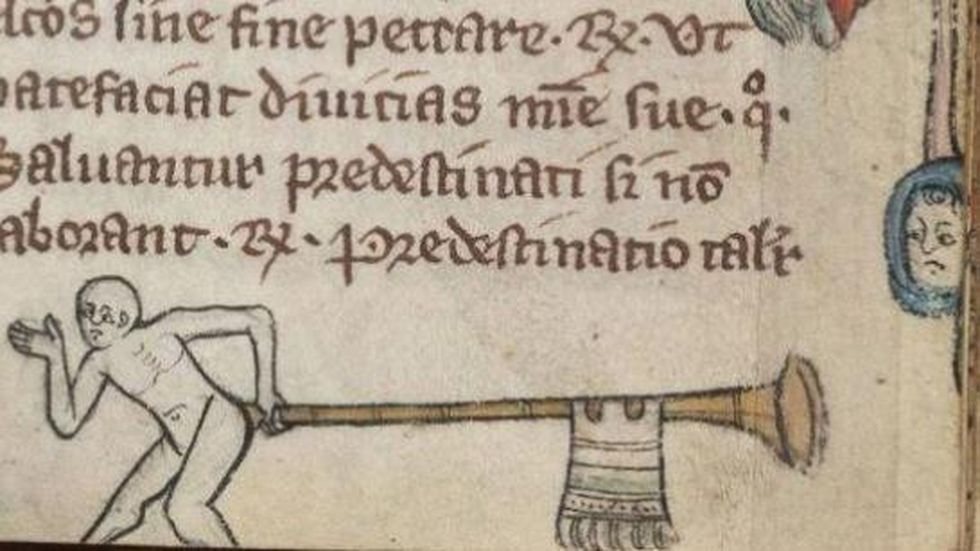 alcos sine fine peccare. R. Ut
patefaciat diuicias mīe sue. q̊.
Saluantur predestinati si nō
laborant. R. Predestinatio talr̄